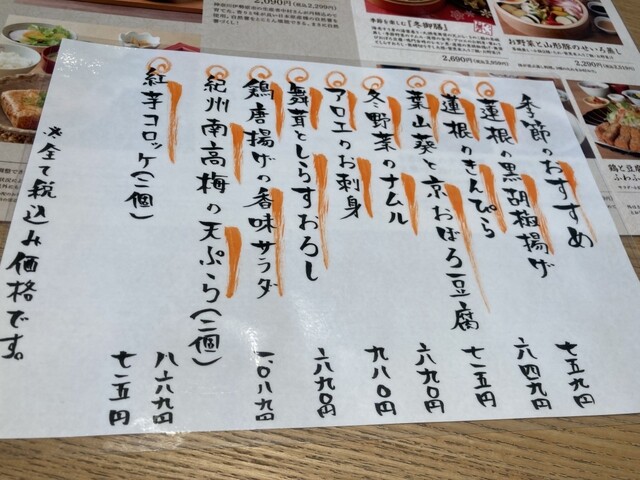 季節のおすすめ
蓮根の黒胡椒揚げ 七五九円
蓮根のきんぴら 六四九円
葉山葵と京おぼろ豆腐 七一五円
冬野菜のナムル 六九0円
アロエのお刺身 九八0円
舞茸としらすおろし 六九0円
鶏唐揚げの香味サラダ 一、0八九円
紀州南高梅の天ぷら(二個) 八六九円
紅芋コロッケ(二個) 七一五円
※全て税込み価格です。
2,090円(税込2,299円)
季節を楽しむ『冬御膳』
2,690円
お野菜と山形豚のせいろ蒸し
2,090円